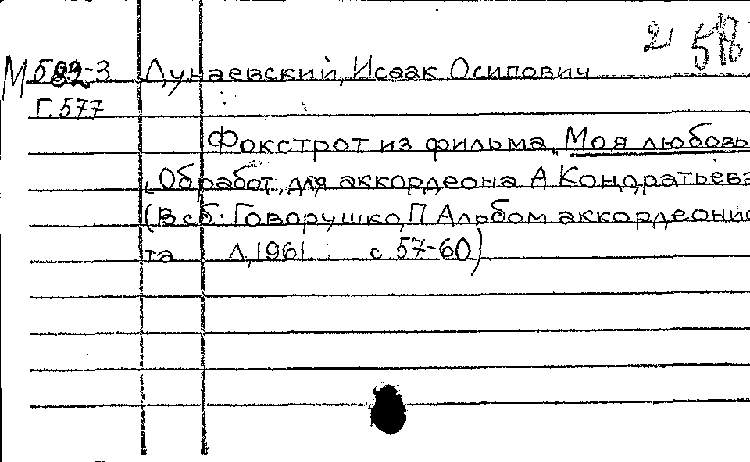 2 518
М 582-3 Дунаевский, Исаак Осипович
Г.577
Фокстрот из фильма „Моя любовь
„Обработ. для аккордеона А Кондратьева
(В сб: Говорушко, П. Альбом аккордеонис
та Л, 1961 с 57-60)